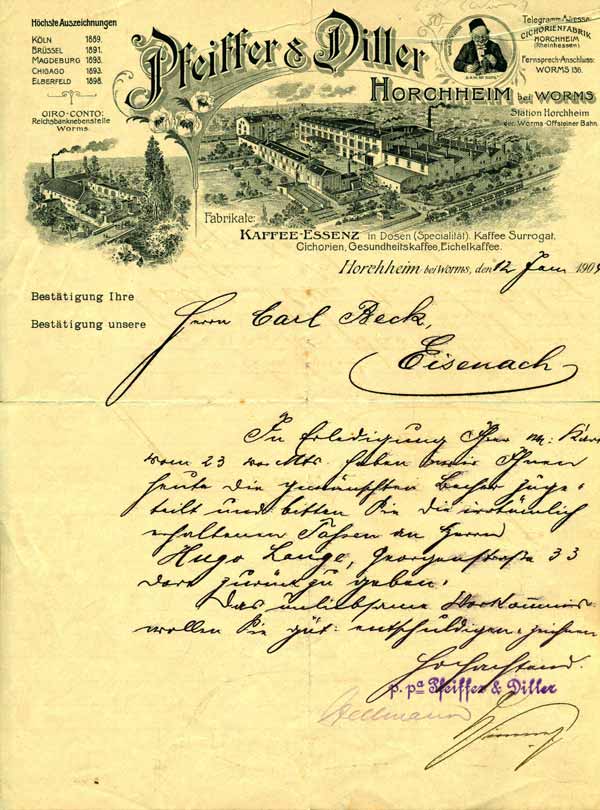 Höchste Auszeichnungen
KÖLN 1889.
BRÜSSEL 1891.
MAGDEBURG 1893.
CHICAGO 1893.
ELBERFELD 1898.
GIRO-CONTO:
Reichsbanknebenstelle
Worms.
Pfeiffer & Diller
HORCHHEIM bei WORMS
Telegramm-Adresse:
CICHORIENFABRIK
HORCHHEIM
(Rheinhessen)
Fernsprech-Anschluss:
WORMS 136.
Station Horchheim
der Worms-Offsteiner Bahn.
Fabrikate:
KAFFEE-ESSENZ in Dosen (Specialität). Kaffee Surrogat.
Cichorien, Gesundheitskaffee, Eichelkaffee.
Horchheim bei Worms, den 12 190
Bestätigung Ihre
Bestätigung unsere
Herrn Carl Beck,
Eisenach
In Erledigung Ihrer
vom 23 haben wir Ihnen
heute die gewünschten Becher zuge-
teilt und bitten Sie die irrtümlich
erhaltenen Tassen an Herrn
Hugo Lange, Georgenstraße 33
dort zurück zu geben.
Das unliebsame Vorkommnis
wollen Sie güt. entschuldigen. zeichnen
Hochachtend.
p. pa Pfeiffer & Diller